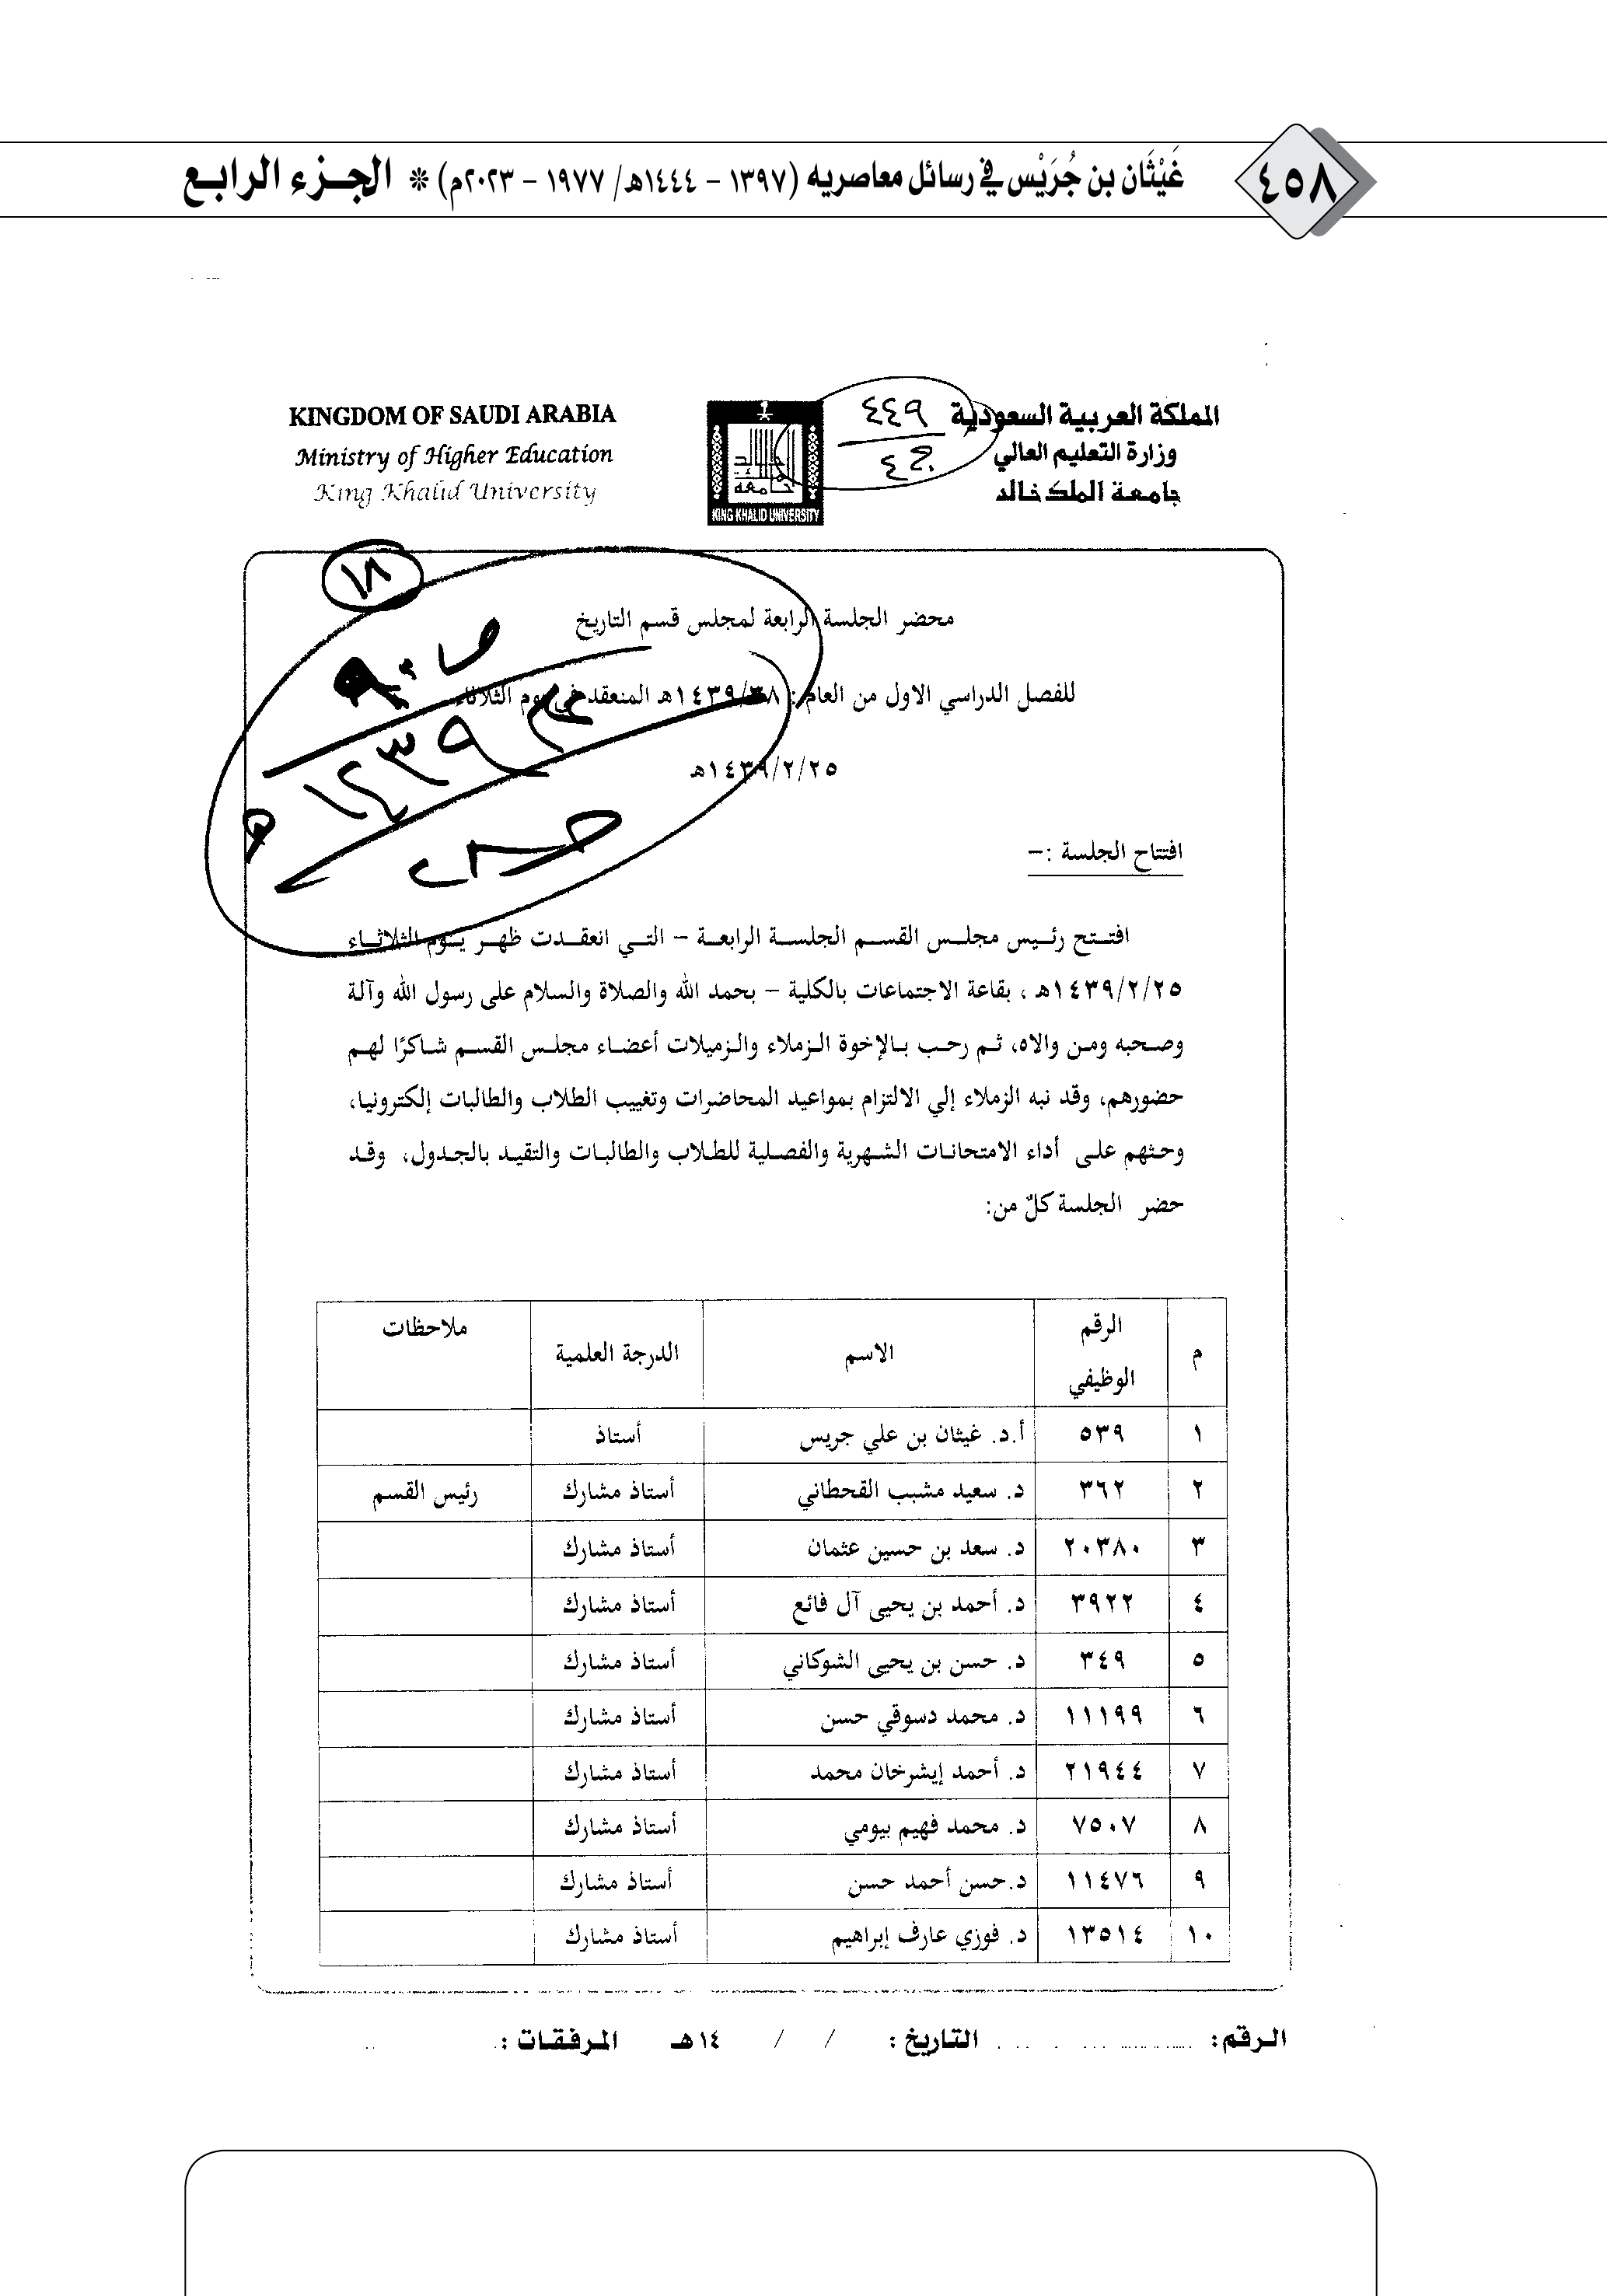 ٤٥٨
غَيْثَان بن جُرَيْس في رسائل معاصريه (١٣٩٧ - ١٤٤٤هـ/ ١٩٧٧ - ٢٠٢٣م) * الجزء الرابع
المملكة العربية السعودية
وزارة التعليم العالي
جامعة الملك خالد
٤٤٩
KING KHALID UNIVERSITY
KINGDOM OF SAUDI ARABIA
Ministry of Higher Education
King Khalid University
١٨
محضر الجلسة الرابعة لمجلس قسم التاريخ
للفصل الدراسي الاول من العام: ١٤٣٩/٣٨هـ المنعقد في يوم الثلاثاء
١٤٣٩/٢/٢٥هـ
١٤٣٩
افتتاح الجلسة :-
افتتح رئيس مجلس القسم الجلسة الرابعة - التي انعقدت ظهر يوم الثلاثاء
١٤٣٩/٢/٢٥هـ ، بقاعة الاجتماعات بالكلية - بحمد الله والصلاة والسلام على رسول الله وآلة
وصحبه ومن والاه، ثم رحب بالإخوة الزملاء والزميلات أعضاء مجلس القسم شاكرًا لهم
حضورهم، وقد نبه الزملاء إلي الالتزام بمواعيد المحاضرات وتغييب الطلاب والطالبات إلكترونيا،
وحثهم على أداء الامتحانات الشهرية والفصلية للطلاب والطالبات والتقيد بالجدول، وقد
حضر الجلسة كلٌ من:
م الرقم الوظيفي الاسم الدرجة العلمية ملاحظات
١ ٥٣٩ أ.د. غيثان بن علي جريس أستاذ
٢ ٣٦٢ د. سعيد مشبب القحطاني أستاذ مشارك رئيس القسم
٣ ٢٠٣٨٠ د. سعد بن حسين عثمان أستاذ مشارك
٤ ٣٩٢٢ د. أحمد بن يحيى آل فائع أستاذ مشارك
٥ ٣٤٩ د. حسن بن يحيى الشوكاني أستاذ مشارك
٦ ١١١٩٩ د. محمد دسوقي حسن أستاذ مشارك
٧ ٢١٩٤٤ د. أحمد إيشرخان محمد أستاذ مشارك
٨ ٧٥٠٧ د. محمد فهيم بيومي أستاذ مشارك
٩ ١١٤٧٦ د.حسن أحمد حسن أستاذ مشارك
١٠ ١٣٥١٤ د. فوزي عارف إبراهيم أستاذ مشارك
الرقم: التاريخ : / / ١٤هـ المرفقات :